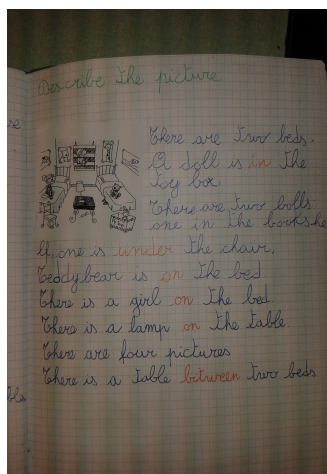 Describe the picture
There are two beds.
A doll is in the
toy box
There are two balls
one in the bookshe
one is under the chair.
Teddy bear is on the bed
There is a girl on the bed.
There is a lamp on the table.
There are four pictures
There is a table between two beds